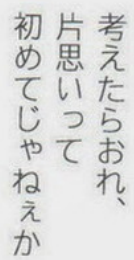 考えたらおれ、
片思いって
初めてじゃねぇか